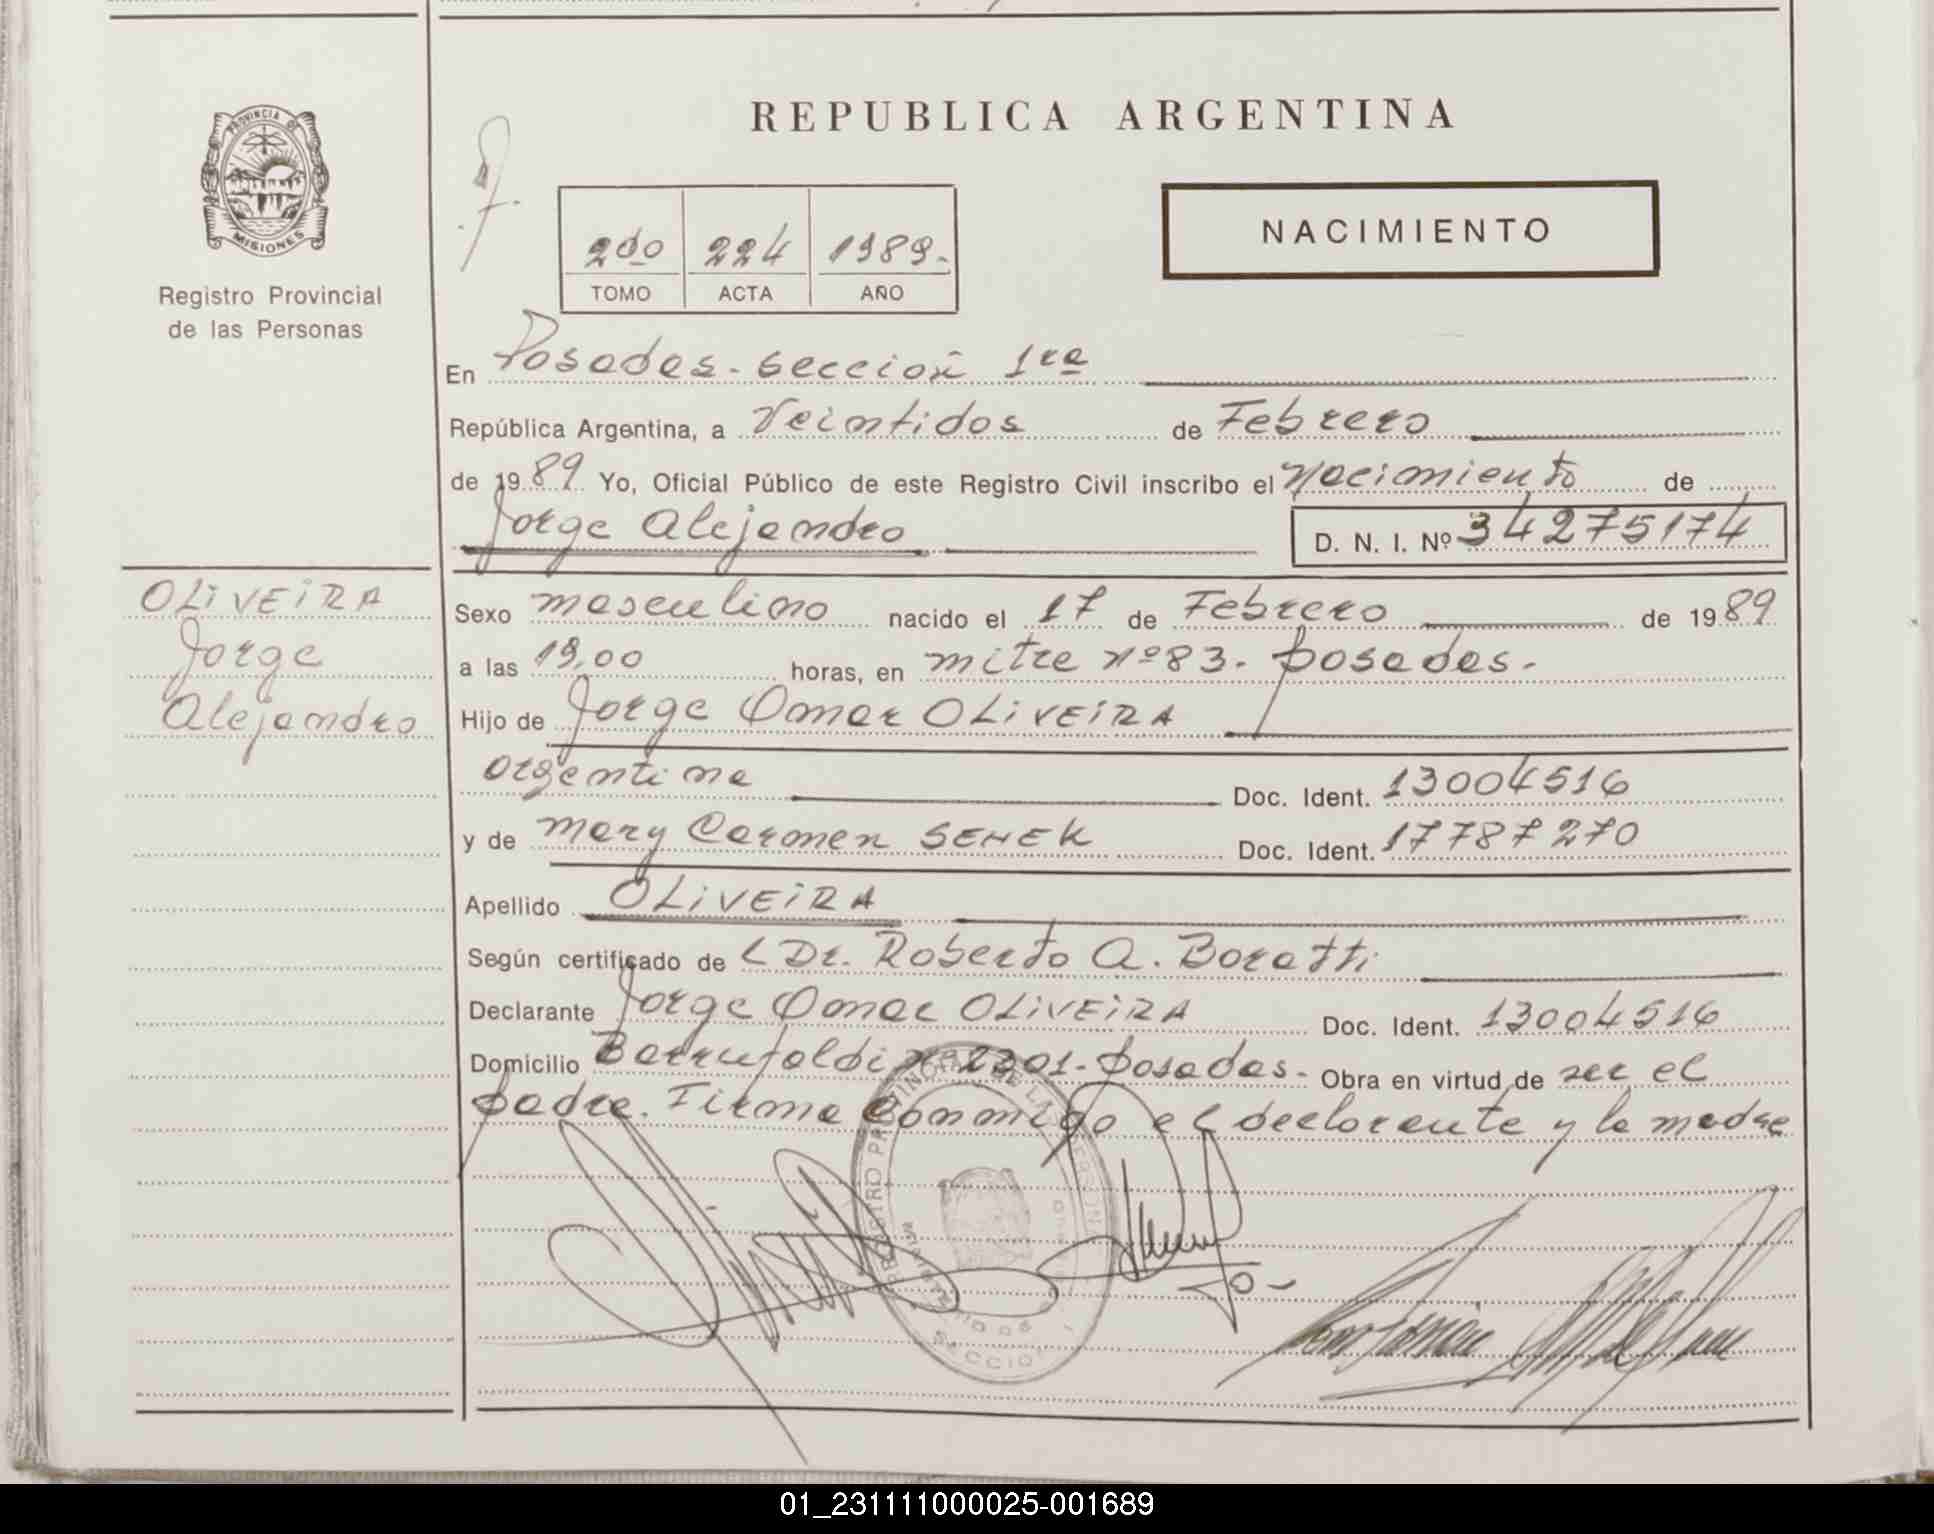 REPUBLICA ARGENTINA
PROVINCIA DE
MISIONES
Registro Provincial
de las Personas
2do 224 1989.
TOMO ACTA AÑO
NACIMIENTO
En Posadas. sección 1ra
República Argentina, a Veintidos de Febrero
de 1989 Yo, Oficial Público de este Registro Civil inscribo el Nacimiento de
Jorge Alejandro D. N. I. Nº 34275174
OLIVEIRA
Jorge
Alejandro
Sexo masculino nacido el 17 de Febrero de 1989
a las 19,00 horas, en mitre nº 83. posadas.
Hijo de Jorge Omar OLIVEIRA
argentina Doc. Ident. 13004516
y de Mary Carmen SENEK Doc. Ident. 17787270
Apellido OLIVEIRA
Según certificado de L Dr. Roberto A. Boratti
Declarante Jorge Omar OLIVEIRA Doc. Ident. 13004516
Domicilio Barrufaldi nº 2301. posadas. Obra en virtud de ser el
padre. Firma conmigo el declarante y la madre
REGISTRO PROVINCIAL DE LAS PERSONAS
SECCION 1
01_231111000025-001689